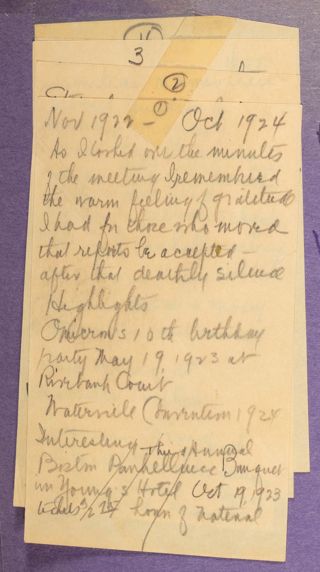 11
3
2
1
Nov 1922 – Oct 1924
As I looked over the minutes
of the meeting I remembered
the warm feeling of gratitude
I had for those who moved
that reports be accepted –
after that deathly silence
Highlights
Omicron's 10th birthday
party May 19, 1923 at
Riverbank Court
Waterville Convention 1924
Interesting Third Annual
Boston Panhellenic Banquet
in Young's Hotel Oct 19, 1923
tickets